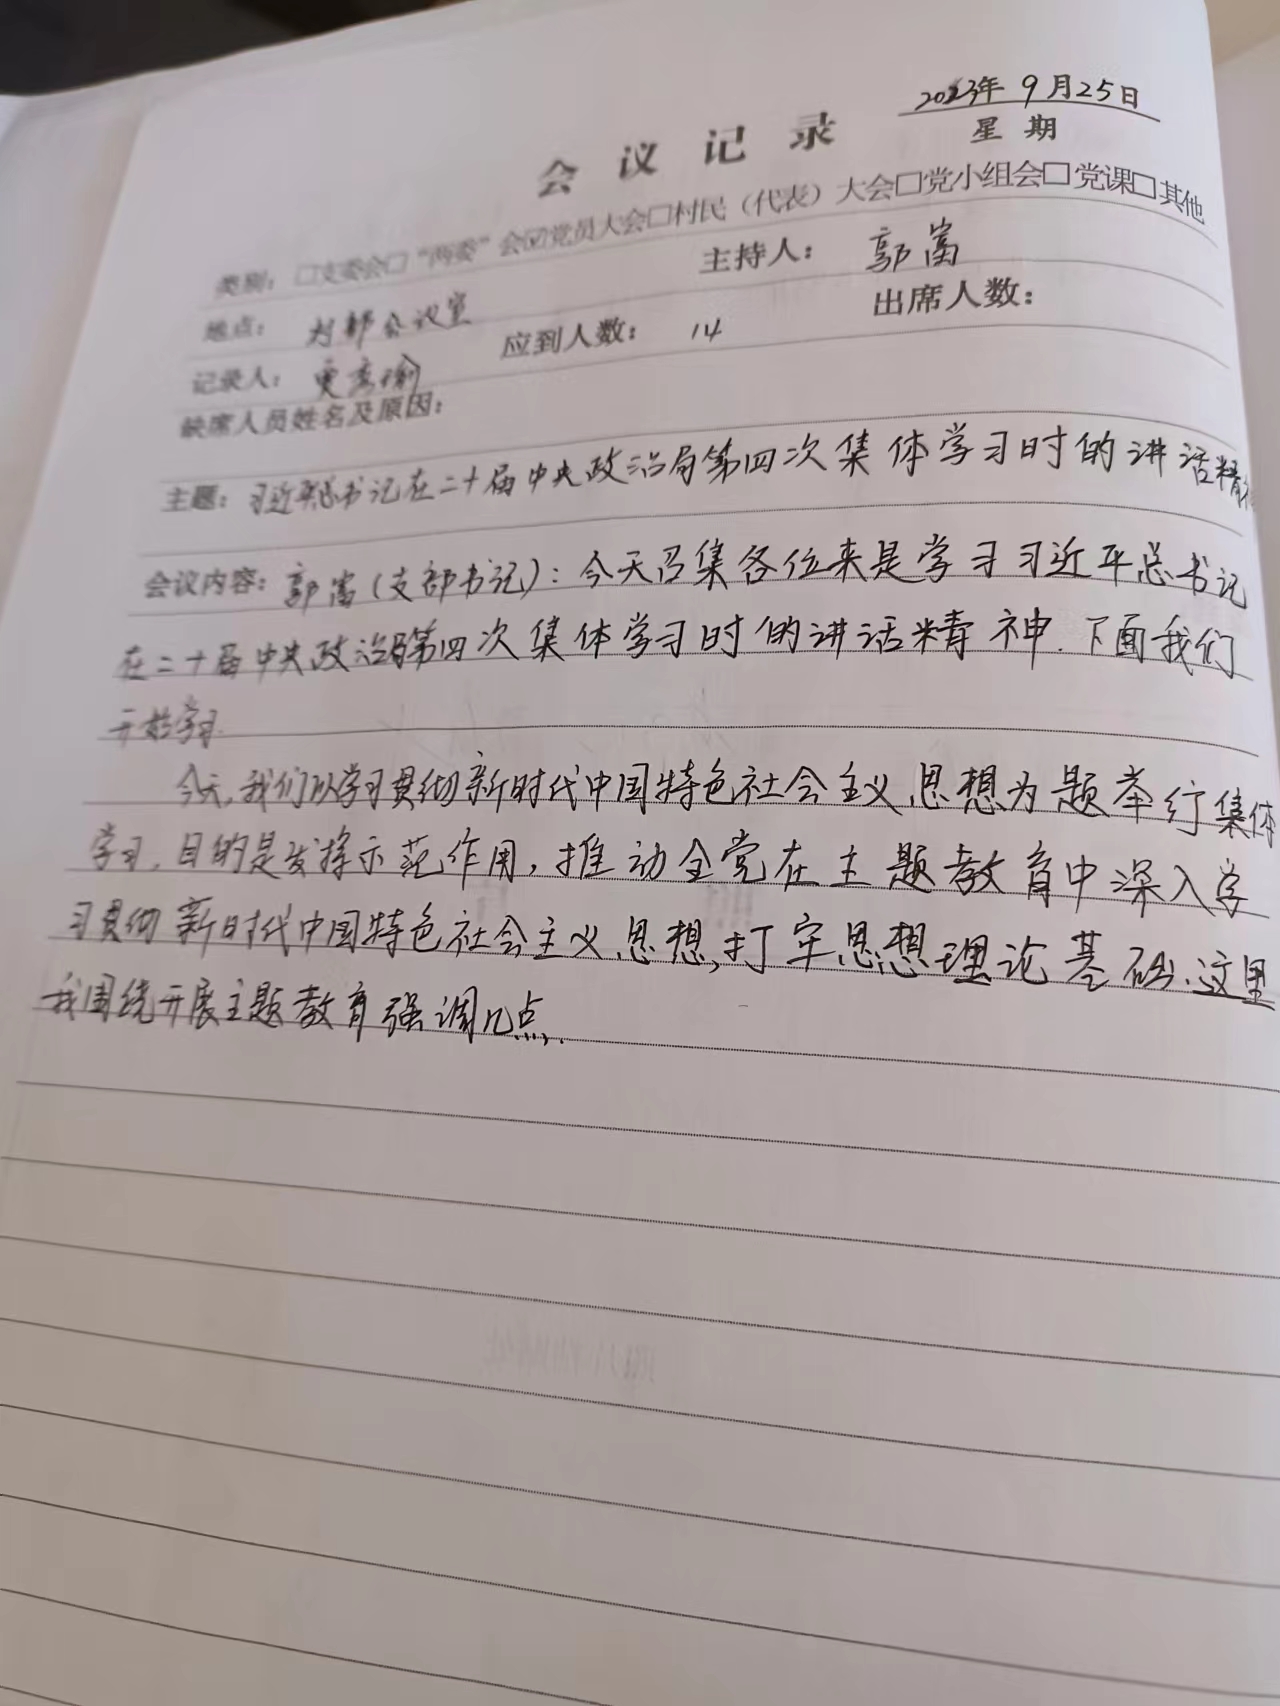 2023年9月25日
会议记录
星期
类别：□支委会□“两委”会☑党员大会□村民（代表）大会□党小组会□党课□其他
地点：村部会议室 主持人：郭富
记录人： 应到人数：14 出席人数：
缺席人员姓名及原因：
主题：习近平总书记在二十届中央政治局第四次集体学习时的讲话精神
会议内容：郭富（支部书记）：今天召集各位来是学习习近平总书记
在二十届中央政治局第四次集体学习时的讲话精神.下面我们
开始学习.
今天,我们以学习贯彻新时代中国特色社会主义思想为题举行集体
学习,目的是发挥示范作用,推动全党在主题教育中深入学
习贯彻新时代中国特色社会主义思想,打牢思想理论基础.这里
我围绕开展主题教育强调几点.